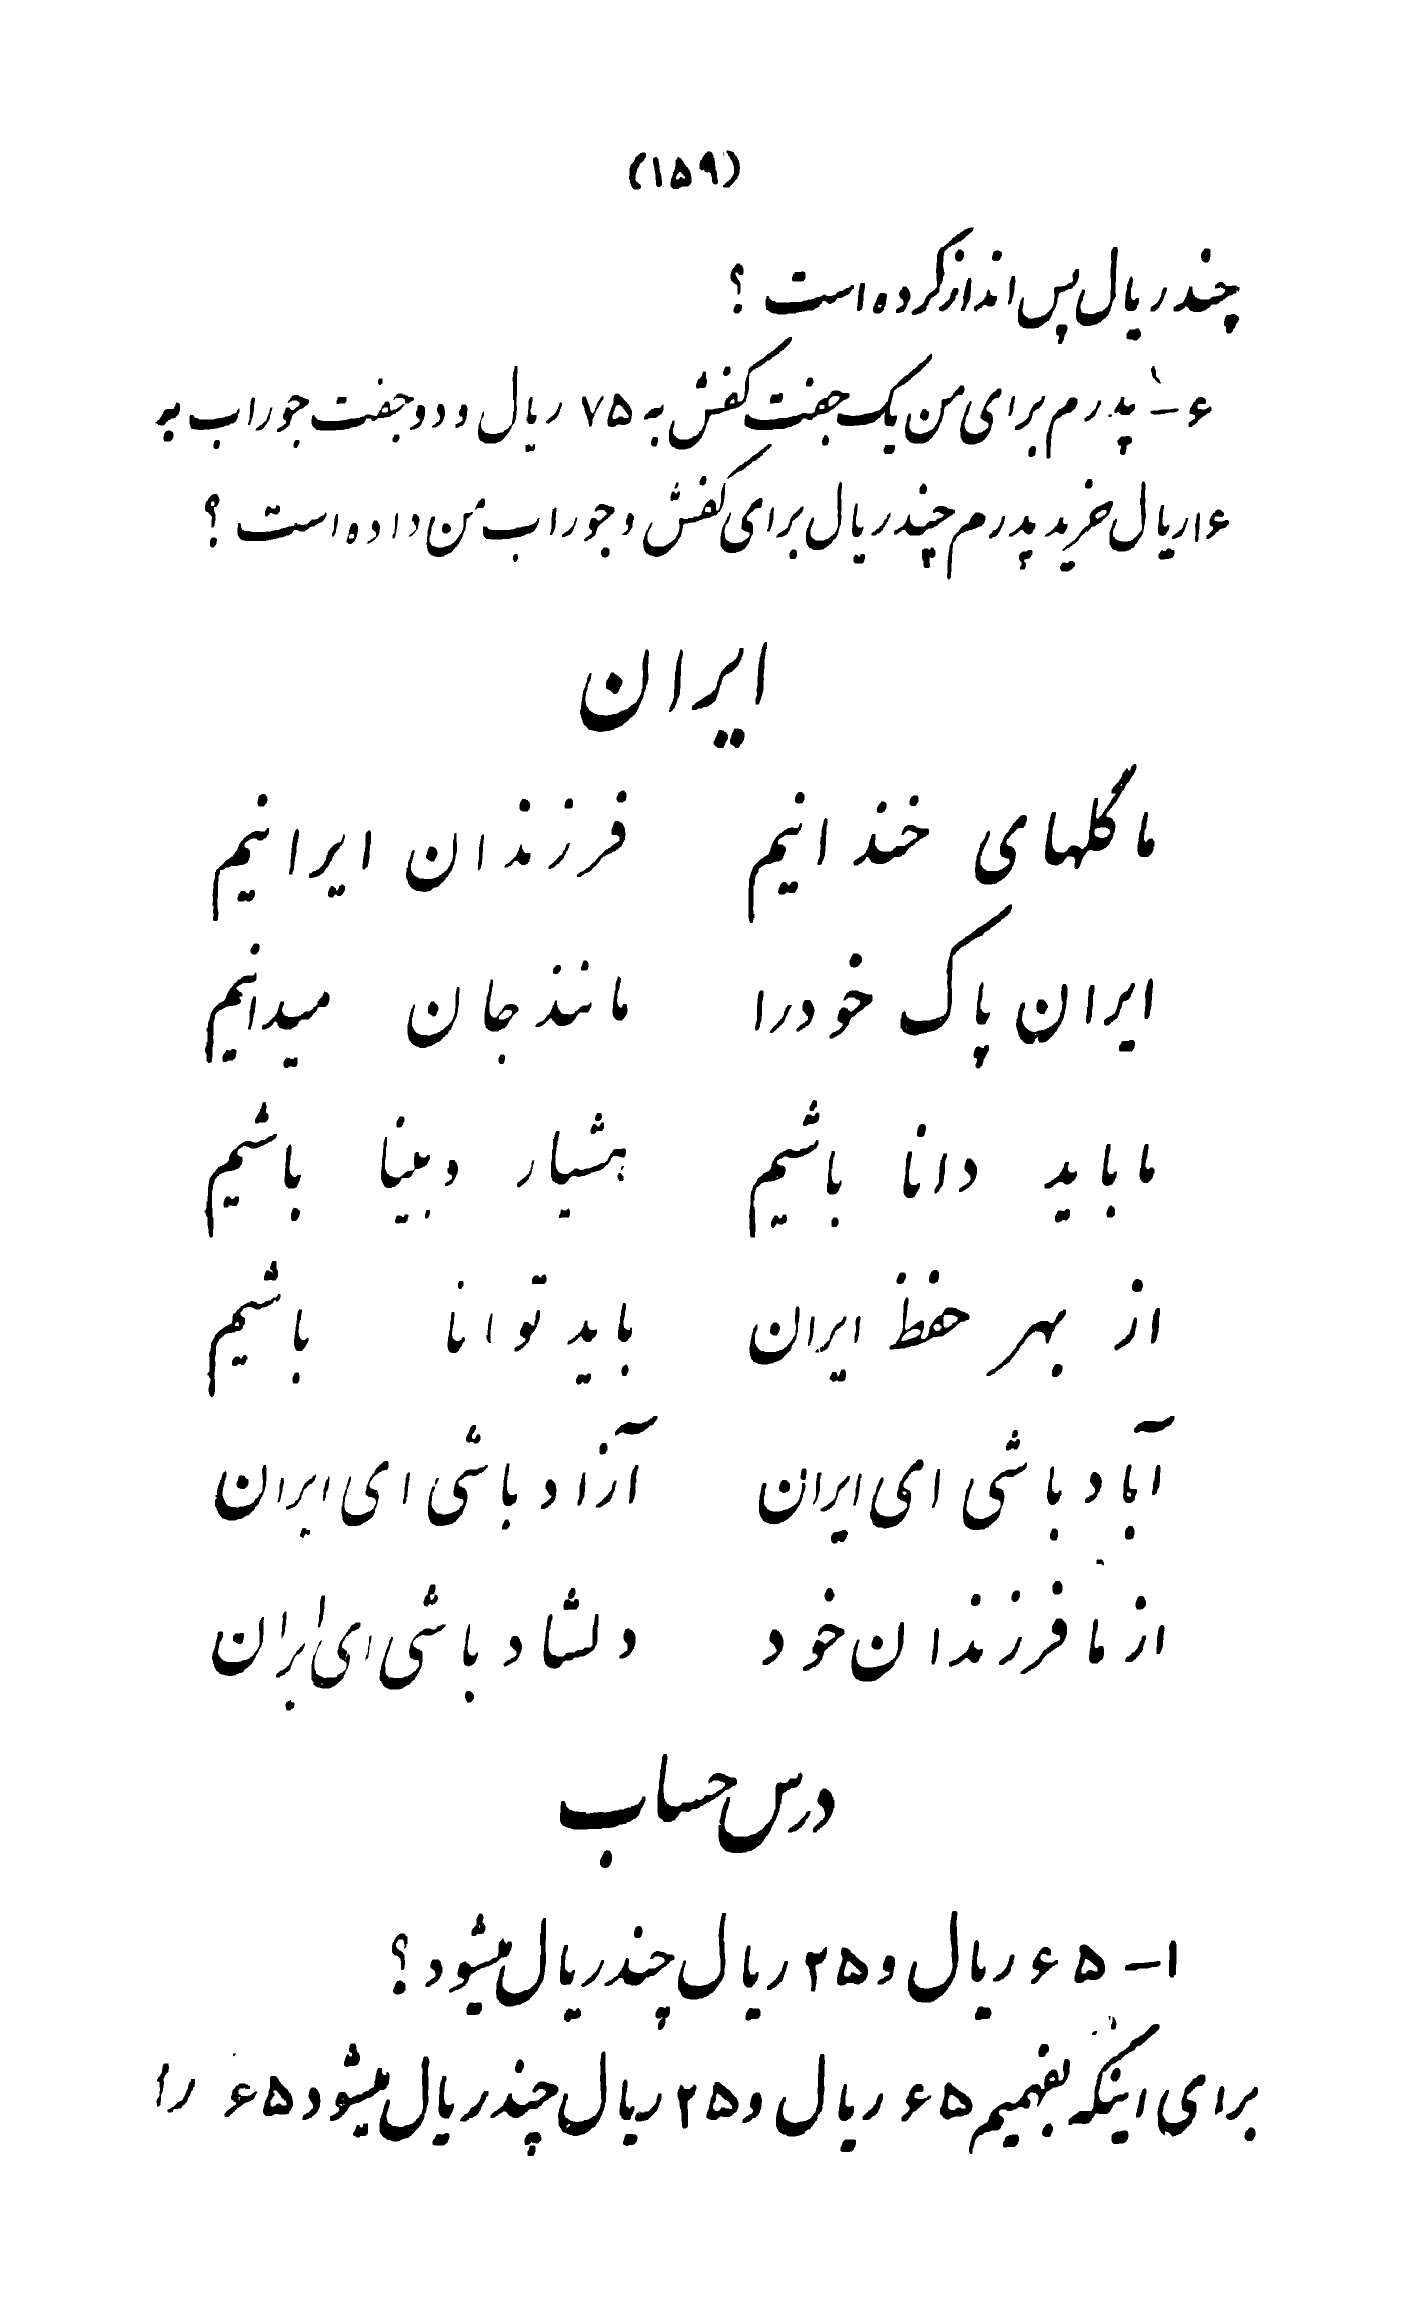 (۱۵۹)
چند ریال پس انداز کرده است ؟
۶- پدرم برای من یک جفت کفش به ۷۵ ریال و دو جفت جوراب به
۱۶ ریال خرید پدرم چند ریال برای کفش و جوراب من داده است ؟
ایران
ما گلهای خندانیم فرزندان ایرانیم
ایران پاک خود را مانند جان میدانیم
ما باید دانا باشیم هشیار و بینا باشیم
از بهر حفظ ایران باید توانا باشیم
آباد باشی ای ایران آزاد باشی ای ایران
از ما فرزندان خود دلشاد باشی ای ایران
درس حساب
۱- ۶۵ ریال و ۲۵ ریال چند ریال میشود ؟
برای اینکه بفهمیم ۶۵ ریال و ۲۵ ریال چند ریال میشود ۶۵ را